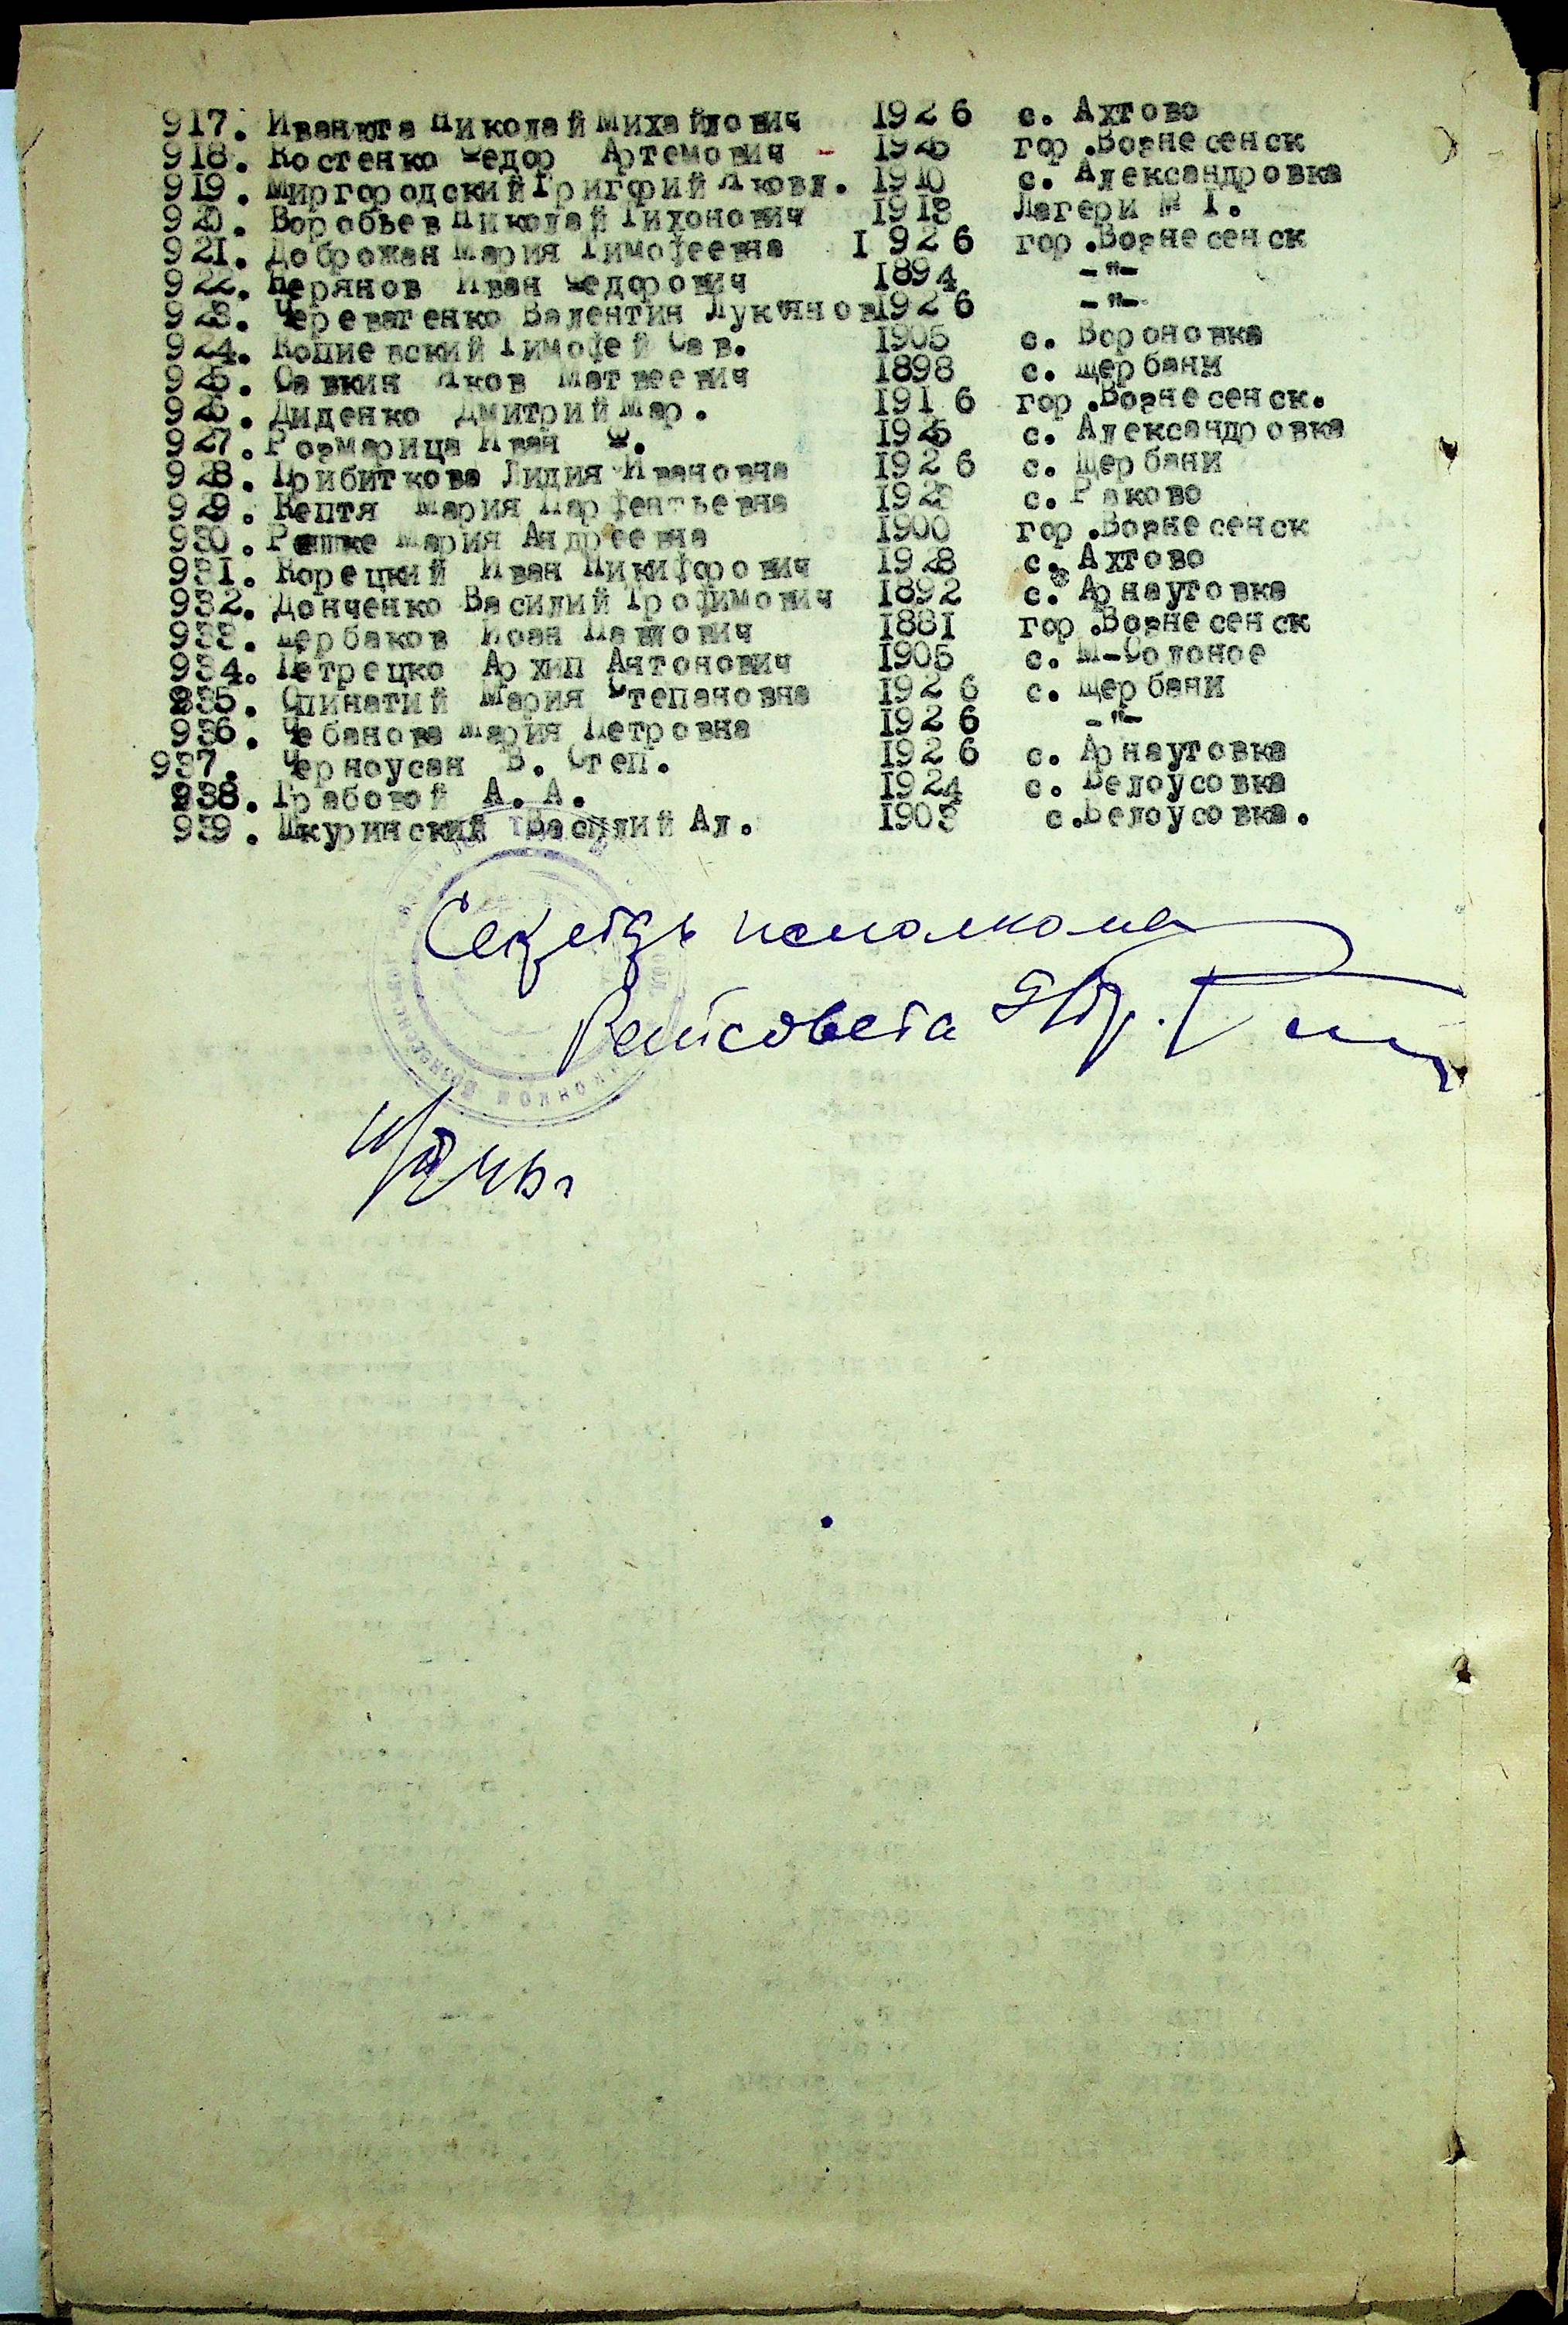 917. Иванюта Николай Михайлович 1926 с. Ахтово
918. Костенко Федор Артемович - 1925 гор.Вознесенск
919. Миргородский Григорий Яковл. 1910 с. Александровка
920. Воробьев Николай Тихонович 1918 Лагери № 1.
921. Доброжан Мария Тимофеевна 1926 гор.Вознесенск
922. Иван Федорович 1894 -"-
923. Череватенко Валентин Лукьянов 1926 -"-
924. Копиевский Тимофей Сав. 1905 с. Вороновка
925. Савкин Яков Матвеевич 1898 с. Щербани
926. Диденко Дмитрий Мар. 1916 гор.Вознесенск.
927. Розмарица Иван Ф. 1925 с. Александровка
928. Прибиткова Лидия Ивановна 1926 с. Щербани
929. Кептя Мария Парфентьевна с. Раково
930. Мария Андреевна 1900 гор.Вознесенск
931. Корецкий Иван Никифорович 1928 с. Ахтово
932. Донченко Василий Трофимович 1892 с. Арнаутовка
933. Щербаков Иван Павлович 1881 гор.Вознесенск
934. Петрецко Архип Антонович 1905 с. М-Солоное
935. Спинатий Мария Степановна 1926 с. Щербани
936. Чебанова Мария Петровна 1926 -"-
937. Черноусан В. Степ. 1926 с. Арнаутовка
938. Грабовой А. А. 1924 с. Белоусовка
939. Шкуринский Василий Ал. 1903 с.Белоусовка.
Секретарь исполкома
Райсовета